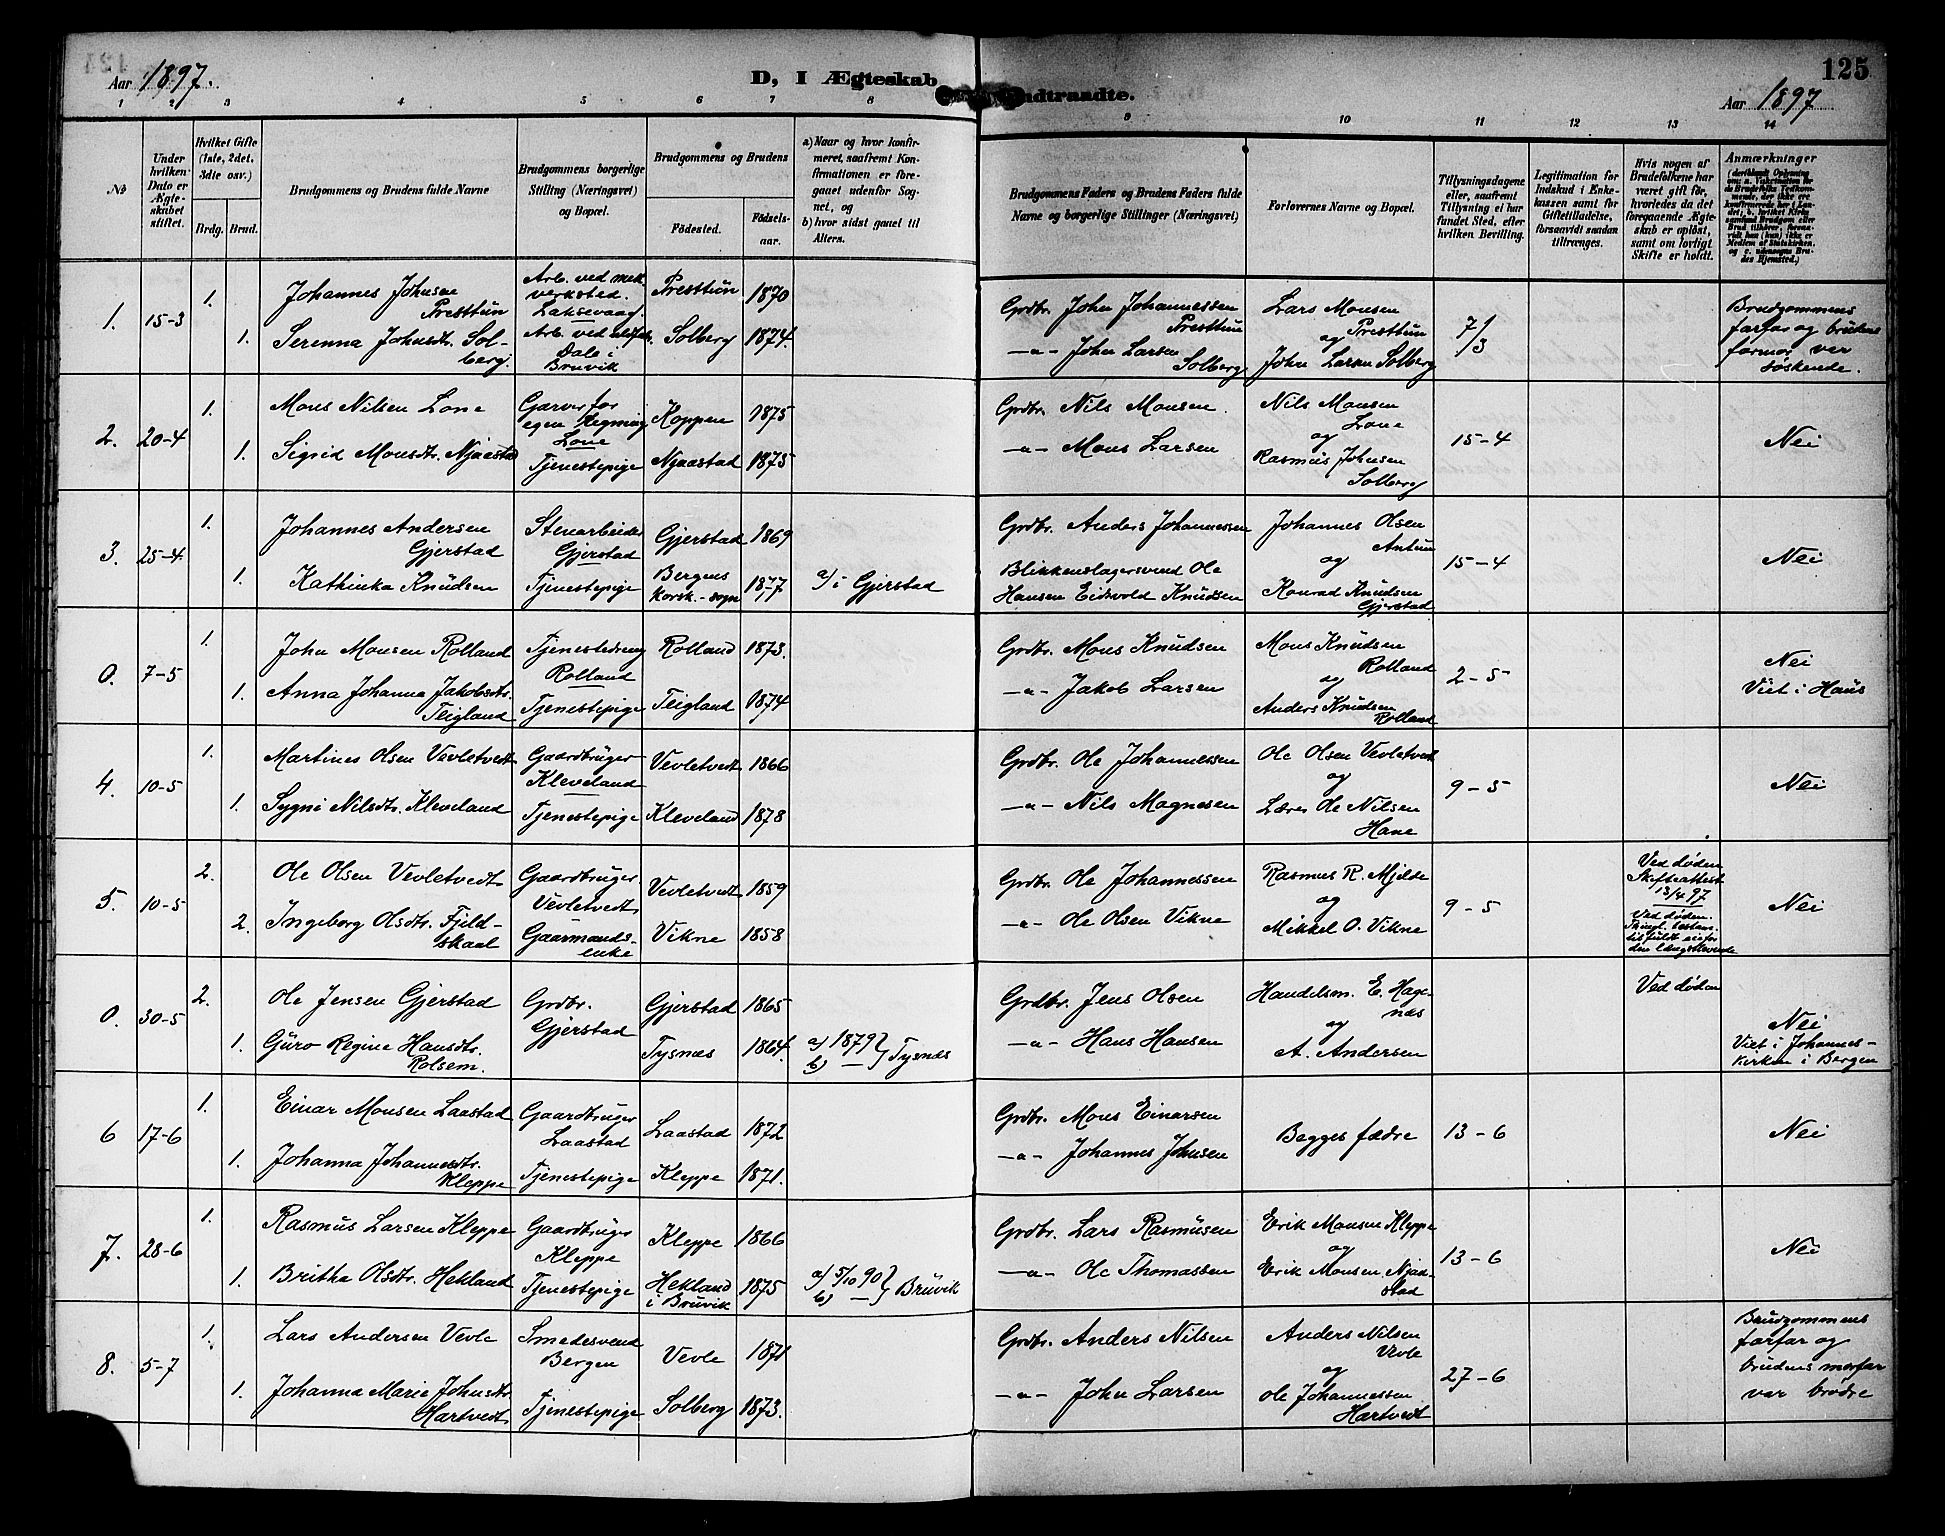 Aar 1897.
D, I Ægteskab Indtraadte.
125
Aar 1897
1 2 3 4 5 6 7 8 9 10 11 12 13 14
No
Under hvilken Dato er Ægteskabet stiftet.
Hvilket Gifte (1ste, 2det, 3die osv.)
Brdg. Brud.
Brudgommens og Brudens fulde Navne
Brudgommens borgerlige Stilling (Næringsvei) og Bopæl.
Brudgommens og Brudens
Fødested.
Fødselsaar.
a) Naar og hvor konfirmeret, saafremt Konfirmationen er foregaaet udenfor Sognet, og
b) hvor sidst gaaet til Alters.
Brudgommens Faders og Brudens Faders fulde Navne og borgerlige Stillinger (Næringsvei)
Forlovernes Navne og Bopæl.
Tillysningsdagene eller, saafremt Tillysning ei har fundet Sted, efter hvilken Bevilling.
Legitimation for Indskud i Enkekassen samt for Giftetilladelse, forsaavidt saadan tiltrænges.
Hvis nogen af Brudefolkene har været gift før, hvorledes da det foregaaende Ægteskab er opløst, samt om lovligt Skifte er holdt.
Anmærkninger
1. 15-3 1. Johannes Johnsen Presttun Arb. ved mek verksted. Laksevaag. Presttun 1870 Grdbr. John Johannessen Presttun Lars Monsen Presttun og John Larsen Solberg 7/3 Brudgommens farfar og brudens farmor var søskende.
1. Serenna Johnsdt. Solberg. Arb. ved Dale i Bruvik Solberg 1874. -"- John Larsen Solberg
2. 20-4 1. Mons Nilsen Lone Garver for egen Regning Lone Koppen 1875 Grdbr. Nils Monsen. Nils Monsen Lone og Rasmus Johnsen Solberg 15-4 Nei
1. Sigrid Monsdt. Njaastad Tjenestepige Njaastad 1875 -"- Mons Larsen
3. 25-4 1. Johannes Andersen Gjerstad Stenarbeider Gjerstad Gjerstad 1869 Grdbr. Anders Johannessen Johannes Olsen Antun og Konrad Knudsen Gjerstad 15-4 Nei
1. Kathinka Knudsen Tjenestepige Bergens korsk.-sogn 1877 a/ i Gjerstad Blikkenslagersvend Ole Hansen Eidsvold Knudsen
0. 7-5 1. John Monsen Rolland Tjenestedreng Rolland Rolland 1873. Grdbr. Mons Knudsen Mons Knudsen Rolland og Anders Knudsen Rolland 2-5 Nei Viet i Haus
1. Anna Johanna Jakobsdt. Teigland Tjenestepige Teigland 1874 -"- Jakob Larsen
4. 10-5 1. Martines Olsen Vevletvedt Gaardbruger Kleveland Vevletvedt 1866 Grdbr. Ole Johannessen Ole Olsen Vevletvedt og Lærer Ole Nilsen Hane 9-5 Nei
1. Sygni Nilsdt. Kleveland Tjenestepige Kleveland 1878 -"- Nils Magnesen
5. 10-5 2. Ole Olsen Vevletvedt Gaardbruger Vevletvedt Vevletvedt 1859 Grdbr. Ole Johannessen Rasmus R. Mjelde og Mikkel O. Vikne 9-5 Ved døden Skifteattest 13/4 97 Nei
2. Ingeborg Olsdt. Fjeldskaal Gaarmandsenke Vikne 1858 -"- Ole Olsen Vikne Ved døden.
0. 30-5 2. Ole Jensen Gjerstad Grdbr. Gjerstad Gjerstad 1865 Grdbr. Jens Olsen Handelsm. E. Hagenæs og A. Andersen Ved døden Nei Viet i Johannes-kirken i Bergen
1. Guro Regine Hansdt. Rolsem. Tysnæs 1864. a) 1879 b) — } Tysnæs -"- Hans Hansen
6 17-6 1. Einar Monsen Laastad Gaardbruger Laastad Laastad 1872 Grdbr. Mons Einarsen Begges fædre 13-6 Nei
1. Johanna Johannesdt. Kleppe Tjenestepige Kleppe 1871. -"- Johannes Johnsen
7. 28-6 1. Rasmus Larsen Kleppe Gaardbruger Kleppe Kleppe 1866 Grdbr. Lars Rasmusen Erik Monsen Kleppe og Erik Monsen Njaastad 13-6 Nei
1. Britha Olsdt. Hekland Tjenestepige Hekland i Bruvik 1875 a) 5/10 90 b) — } Bruvik -"- Ole Thomassen
8. 5-7 1. Lars Andersen Vevle Smedesvend Bergen Vevle 1871 Grdbr. Anders Nilsen Anders Nilsen Vevle og Ole Johannessen Hartvedt 27-6 Brudgommens farfar og brudens morfar var brødre
1. Johanna Marie Johnsdt. Hartvedt Tjenestepige Solberg 1873. -"- John Larsen